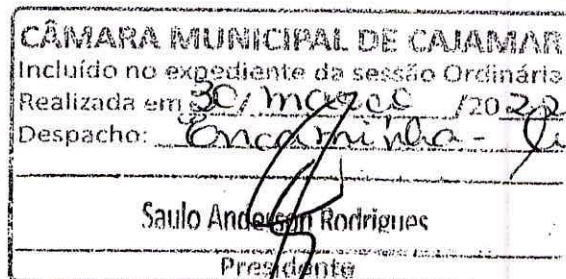 CÂMARA MUNICIPAL DE CAJAMAR
Incluído no expediente da sessão Ordinária
Realizada em 30/ março /2022
Despacho: Encaminha-
Saulo Anderson Rodrigues
Presidente